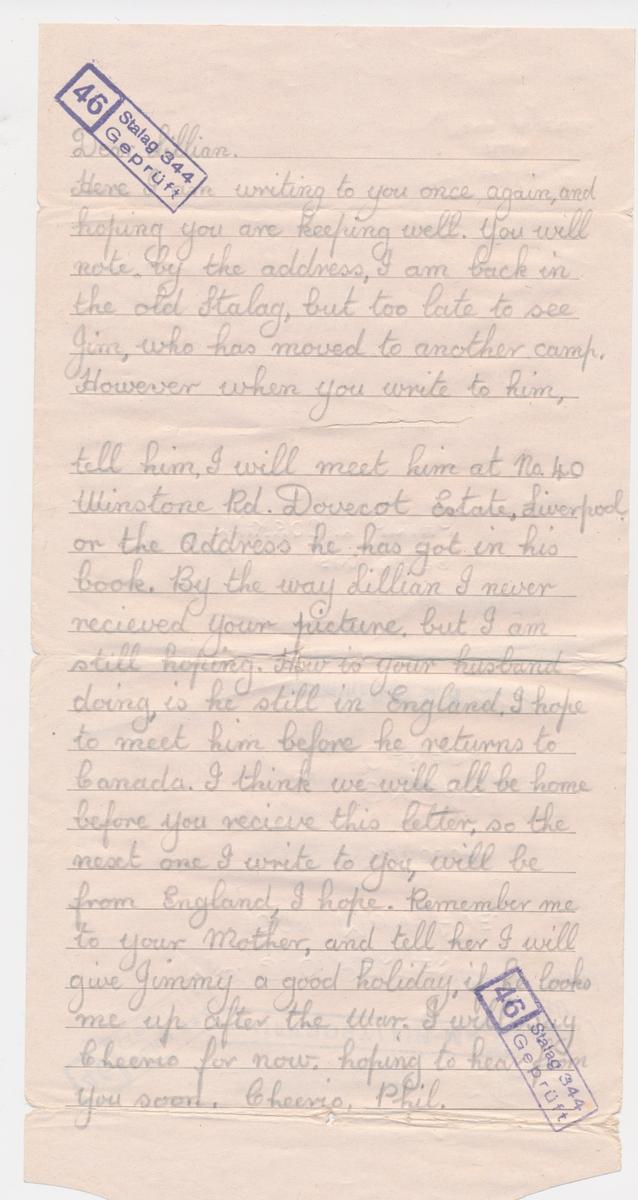 46 Stalag 344
Geprüft
Dear Lillian.
Here I am writing to you once again, and
hoping you are keeping well. You will
note by the address, I am back in
the old Stalag, but too late to see
Jim, who has moved to another camp.
However when you write to him,
tell him, I will meet him at No. 40
Winstone Rd. Dovecot Estate, Liverpool
or the Address he has got in his
book. By the way Lillian I never
recieved your picture, but I am
still hoping. How is your husband
doing, is he still in England, I hope
to meet him before he returns to
Canada. I think we will all be home
before you recieve this letter, so the
next one I write to you, will be
from England, I hope. Remember me
to your Mother, and tell her I will
give Jimmy a good holiday, if he looks
me up after the War. I will say
Cheerio for now, hoping to hear from
you soon. Cheerio. Phil.
46 Stalag 344
Geprüft